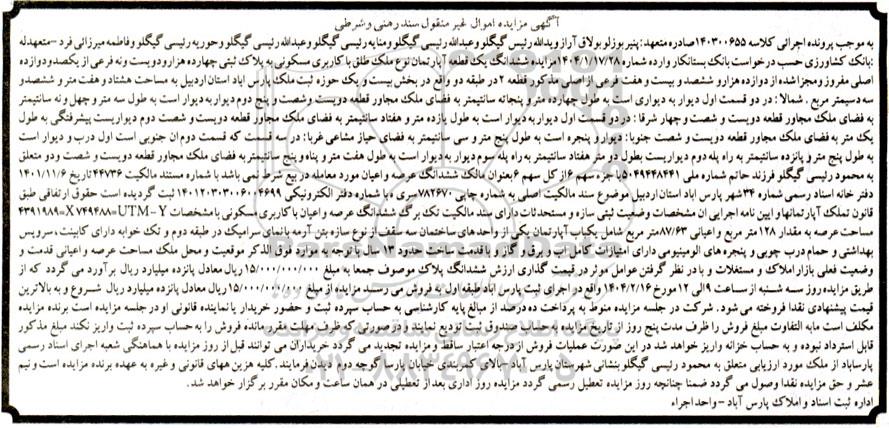 آگهی مزایده اموال غیر منقول سند رهنی و شرطی
به موجب پرونده اجرائی کلاسه ۱۴۰۳۰۰۶۵۵ صادره متعهد: پنیر بوزلو بولاق آراز ویداله رئیس گیگلو و عبداله رئیسی گیگلو و منایه رئیسی گیگلو و عبداله رئیسی گیگلو و حوریه رئیسی گیگلو وفاطمه میرزائی فرد - متعهدله
:بانک کشاورزی حسب درخواست بانک بستانکار وارده شماره ۱۴۰۴/۱/۱۷/۲۸ مزایده ششدانگ یک قطعه آپارتمان نوع ملک طلق با کاربری مسکونی به پلاک ثبتی چهارده هزار و دویست ونه فرعی از یکصدو دوازده
اصلی مفروز و مجزا شده از دوازده هزار و ششصد و بیست و هفت فرعی از اصلی مذکور قطعه ۲ در طبقه دو واقع در بخش بیست و یک حوزه ثبت ملک پارس اباد استان اردبیل به مساحت هشتاد و هفت متر و ششصد و
سه دسیمتر مربع . شمالا : در دو قسمت اول دیوار به دیواری است به طول چهارده متر و پنجاه سانتیمتر به فضای ملک مجاور قطعه دویست وشصت و پنج دوم دیوار به دیوار است به طول سه متر و چهل و نه سانتیمتر
به فضای ملک مجاور قطعه دویست و شصت و چهار شرقا : در دو قسمت اول دیوار به دیوار است به طول یازده متر و هفتاد سانتیمتر به فضای ملک مجاور قطعه دویست و شصت دوم دیواریست پیشرفتگی به طول
یک متر به فضای ملک مجاور قطعه دویست و شصت جنوبا: دیوار و پنجره است به طول پنج متر و سی سانتیمتر به فضای حیاز مشاعی غربا: در سه قسمت که قسمت دوم ان جنوبی است اول درب و دیوار است
به طول پنج متر و پانزده سانتیمتر به راه پله دوم دیواریست بطول دو متر هفتاد سانتیمتر به راه پله سوم دیوار به دیوار است به طول هفت متر و پناه و پنج سانتیمتر به فضای ملک مجاور قطعه دویست و شصت ودو متعلق
به محمود رئیسی گیگلو فرزند حاتم شماره ملی ۵۰۴۹۴۴۸۴۴۱ با جزء سهم ۶ از کل سهم ۶ بعنوان مالک ششدانگ عرصه و اعیان مورد معامله در بیع شرط نمی باشد با شماره مستند مالکیت ۴۴۷۳۶ تاریخ ۱۴۰۱/۱۱/۶
دفتر خانه اسناد رسمی شماره ۳۴ شهر پارس اباد استان اردبیل موضوع سند مالکیت اصلی به شماره چاپی ۷۸۲۶۷۰ سری ه با شماره دفتر الکترونیکی ۱۴۰۱۲۰۳۰۳۰۰۶۰۰۴۶۹۹ ثبت گردیده است حقوق ارتفاقی طبق
قانون تملک آپارتمانها و ایین نامه اجرایی ان مشخصات وضعیت ثبتی سازه و مستحدثات دارای سند مالکیت تک برگ ششدانگ عرصه و اعیان با کاربری مسکونی با مشخصات UTM-Y=۴۳۹۱۹۸۹=X۷۴۹۴۸۸
مساحت عرصه به مقدار ۱۲۸ متر مربع و اعیانی ۸۷/۶۳ متر مربع شامل یکباب آپارتمان یکی از واحدهای ساختمان سه سقف از نوع سازه بتن آرمه بانمای سرامیک در طبقه دوم و تک خوابه دارای کابینت، سرویس
بهداشتی و حمام درب چوبی و پنجره های الومینیومی دارای امتیازات کامل اب و برق و گاز و با قدمت ساخت حدود ۱۳ سال با توجه به موارد فوق الذکر موقعیت و محل ملک مساحت عرصه و اعیانی قدمت و
وضعیت فعلی بازار املاک و مستغلات و با در نظر گرفتن عوامل موثر در قیمت گذاری ارزش ششدانگ پلاک موصوف جمعا به مبلغ ۱۵/۰۰۰/۰۰۰/۰۰۰ ریال معادل پانزده میلیارد ریال برآورد می گردد که از
طریق مزایده روز سه شنبه از ساعت ۹ الی ۱۲ مورخ ۱۴۰۴/۲/۱۶ واقع در اجرای ثبت پارس آباد طبقه اول به فروش می رسد مزایده از مبلغ ۱۵/۰۰۰/۰۰۰/۰۰۰ ریال معادل پانزده میلیارد ریال شروع و به بالاترین
قیمت پیشنهادی نقدا فروخته می شود. شرکت در جلسه مزایده منوط به پرداخت ده درصد از مبالغ پایه کارشناسی به حساب سپرده ثبت و حضور خریدار یا نماینده قانونی او در جلسه مزایده است برنده مزایده
مکلف است مابه التفاوت مبلغ فروش را ظرف مدت پنج روز از تاریخ مزایده به حساب صندوق ثبت تودیع نمایند و در صورتی که ظرف مهلت مقرر مانده فروش را به حساب سپرده ثبت واریز نکند مبلغ مذکور
قابل استرداد نبوده و به حساب خزانه واریز خواهد شد در این صورت عملیات فروش از درجه اعتبار ساقط و مزایده تجدید می گردد خریداران می توانند قبل از روز مزایده با هماهنگی شعبه اجرای اسناد رسمی
پارساباد از ملک مورد ارزیابی متعلق به محمود رئیسی گیگلو بنشانی شهرستان پارس آباد - بالای کمربندی خیابان پارسا کوچه دوم دیدن فرمایند. کلیه هزین ههای قانونی و غیره به عهده برنده مزایده است و نیم
عشر و حق مزایده نقدا وصول می گردد ضمنا چنانچه روز مزایده تعطیل رسمی گردد مزایده روز اداری بعد از تعطیلی در همان ساعت و مکان مقرر برگزار خواهد شد.
اداره ثبت اسناد و املاک پارس آباد - واحد اجراء